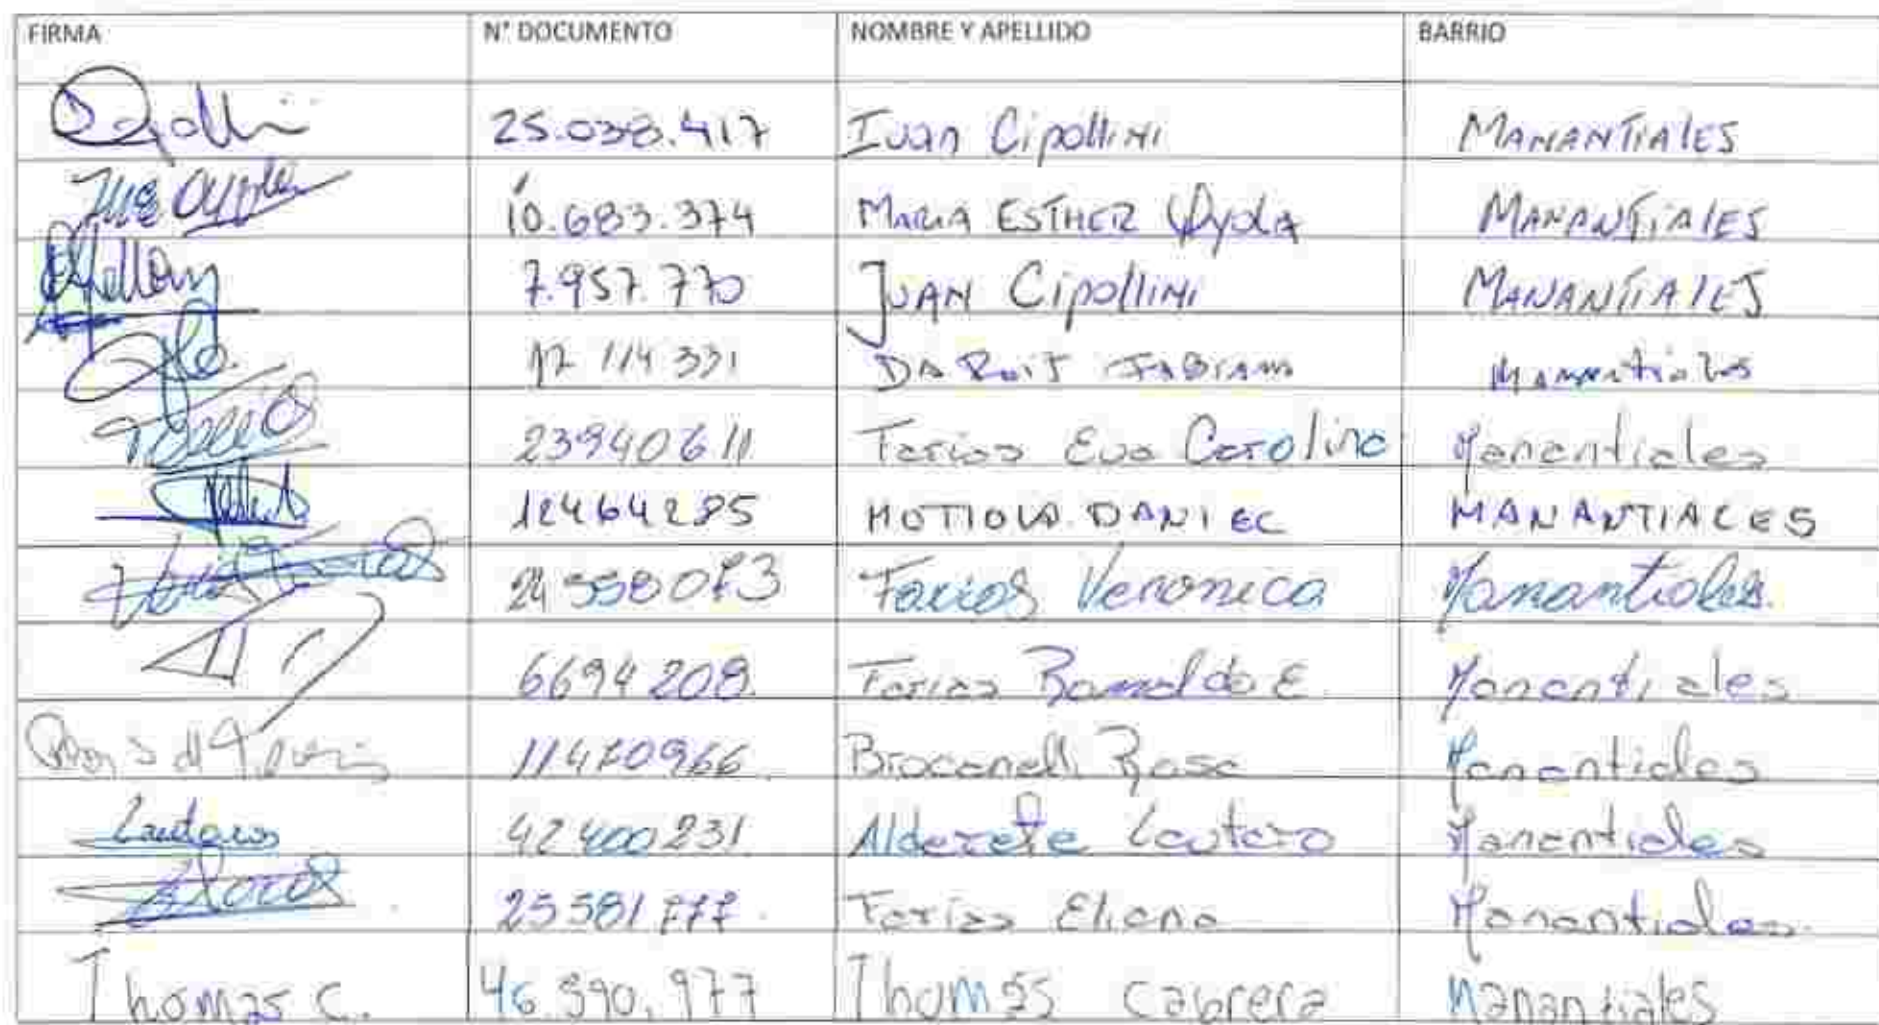 FIRMA N° DOCUMENTO NOMBRE Y APELLIDO BARRIO
25.038.417 Ivan Cipollini MANANTIALES
10.683.374 MARIA ESTHER Oyola MANANTIALES
7.957.770 JUAN Cipollini MANANTIALES
17 114 331 DA RUIT FABIAM Manantiales
23940611 Farias Eva Carolina Manantiales
12464285 MOTTOLA DANIEL MANANTIALES
24558073 Farias Veronica Manantiales.
6694208. Farias Ramaldo E Manantiales
11470966 Brocanelli Rosa Manantiales
Lautaro 42400231 Alderete Lautaro Manantiales
25581777. Farias Eliana Manantiales.
Thomas C. 46.390.977 Thomas Cabrera Manantiales